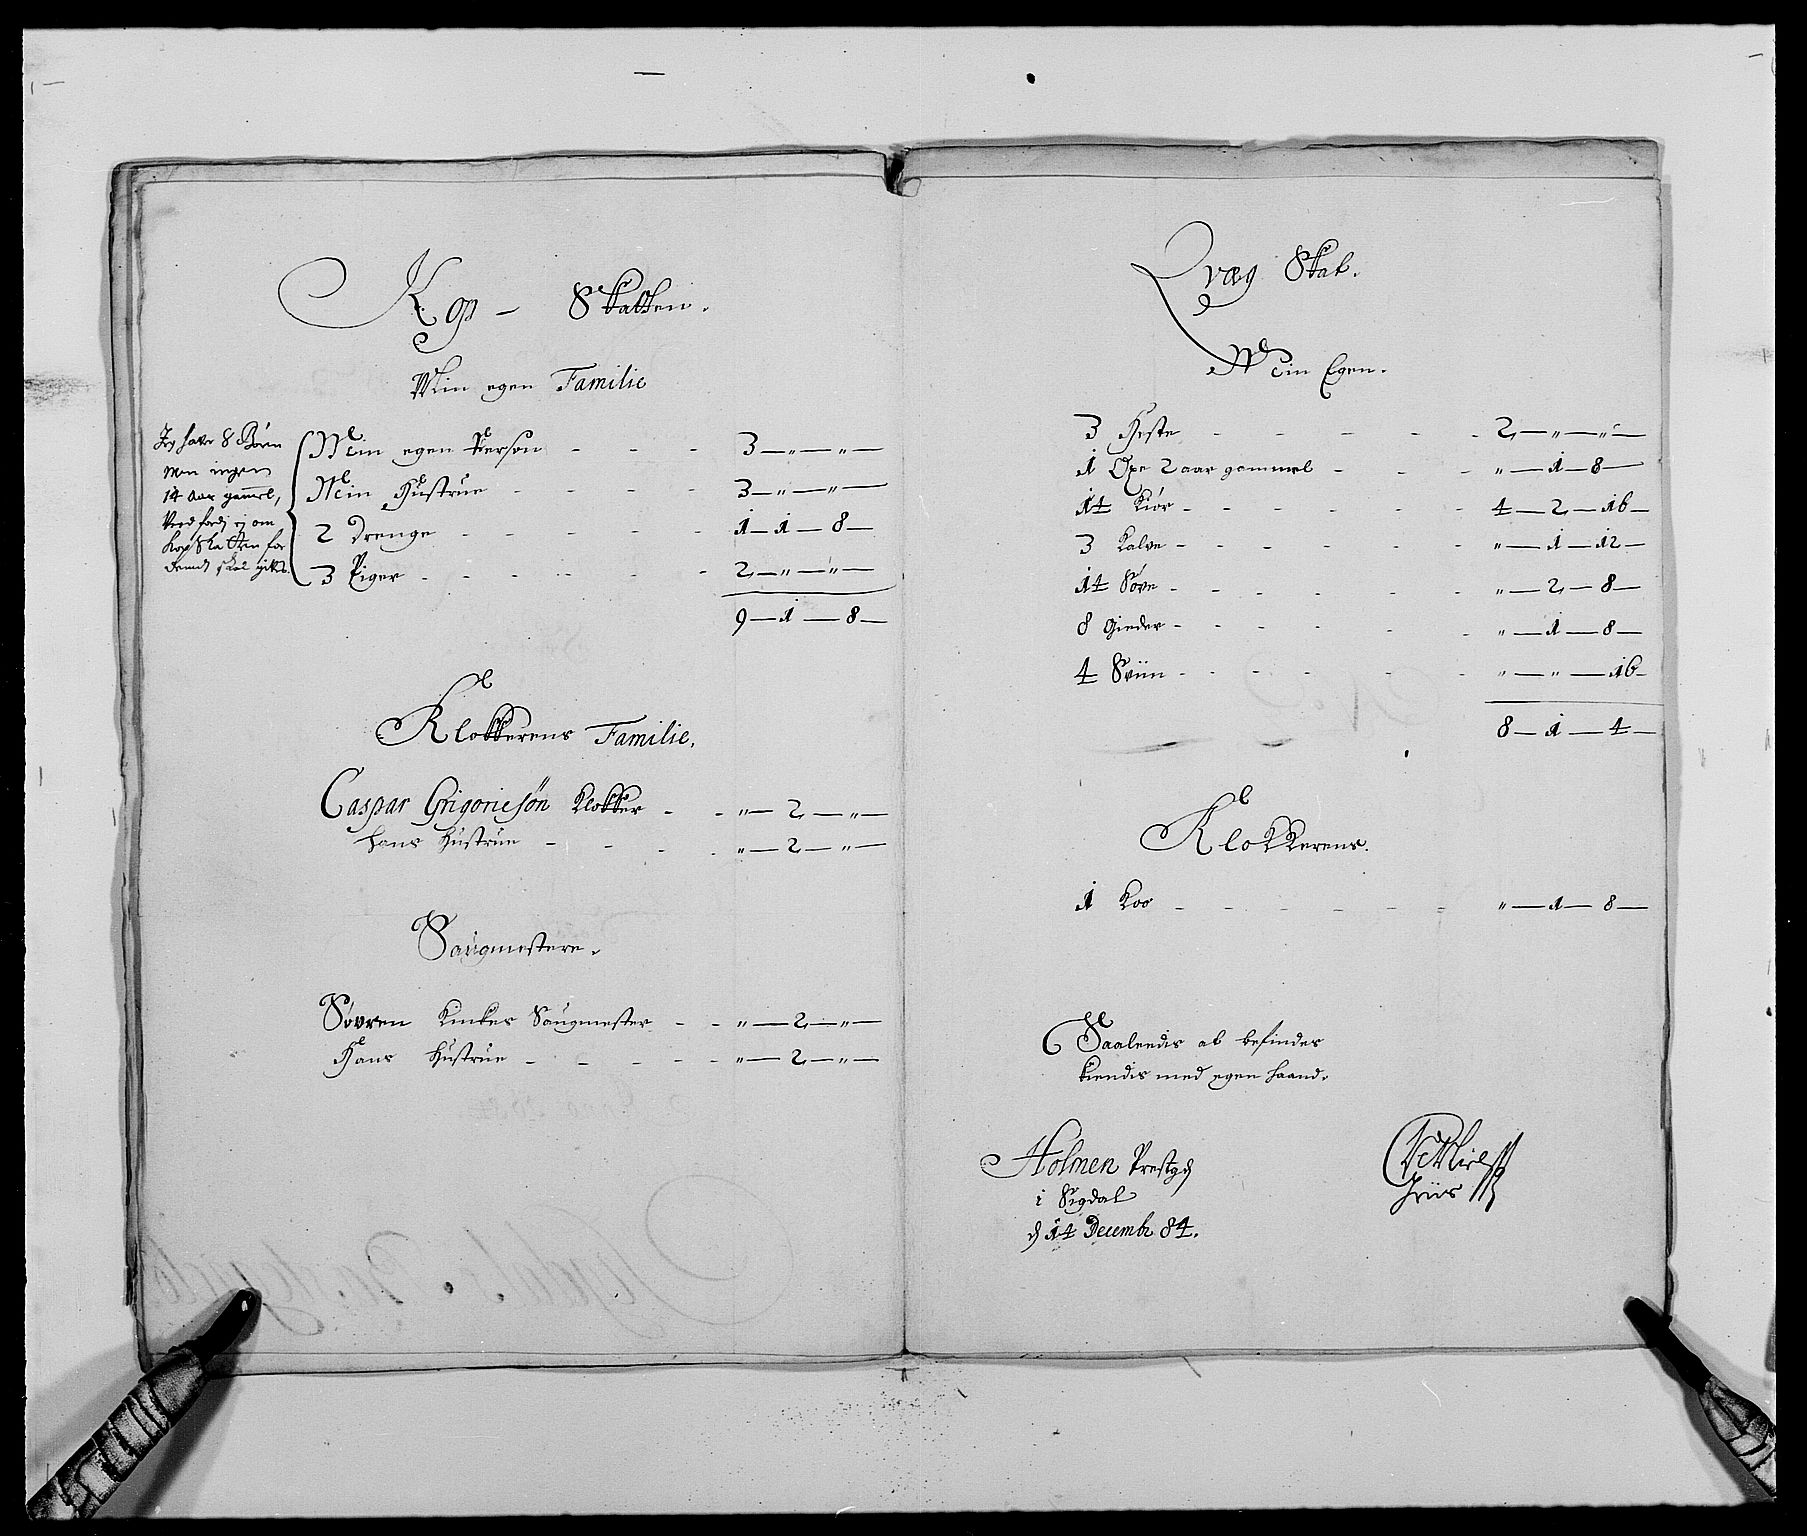 Kop - Skatten.
Min egen Familie
Jeg hafr 8 Børn
men ingen
14 Aar gammel,
Veed fordj ej om
Kop Skatten for
dennem skal gifvis.
Min egen Person - - - 3 — „ — „ —
Min Hustrue - - - - 3 — „ — „ —
2 Drenge - - - - - 1 — 1 — 8 —
3 Piger - - - - - 2 — „ — „ —
9 — 1 — 8 —
Klokkerens Familie.
Caspar Grigoriesøn Klokker - - „ — 2 — „ —
hans Hustrue - - - - „ — 2 — „ —
Saugmestere.
Søvren Kinkes Saugmester - - „ — 2 — „ —
Hans Hustrue - - - - - „ — 2 — „ —
Qvæg Skat.
Min Egen.
3 Heste - - - - - 2 — „ — „ —
1 Oxe 2 aar gammel - - - „ — 1 — 8 —
14 Kiør - - - - - - 4 — 2 — 16 —
3 Kalve - - - - - - „ — 1 — 12 —
14 Søve - - - - - - „ — 2 — 8 —
8 Gieder - - - - - - „ — 1 — 8 —
4 Sviin - - - - - - „ — „ — 16 —
8 — 1 — 4 —
Klokkerens.
1 Koo - - - - - - „ — 1 — 8 —
Saaleedis at befindes
kiendis med egen haand.
Holmen Prestgd
i Sigdal
d 14 Decembr 84.